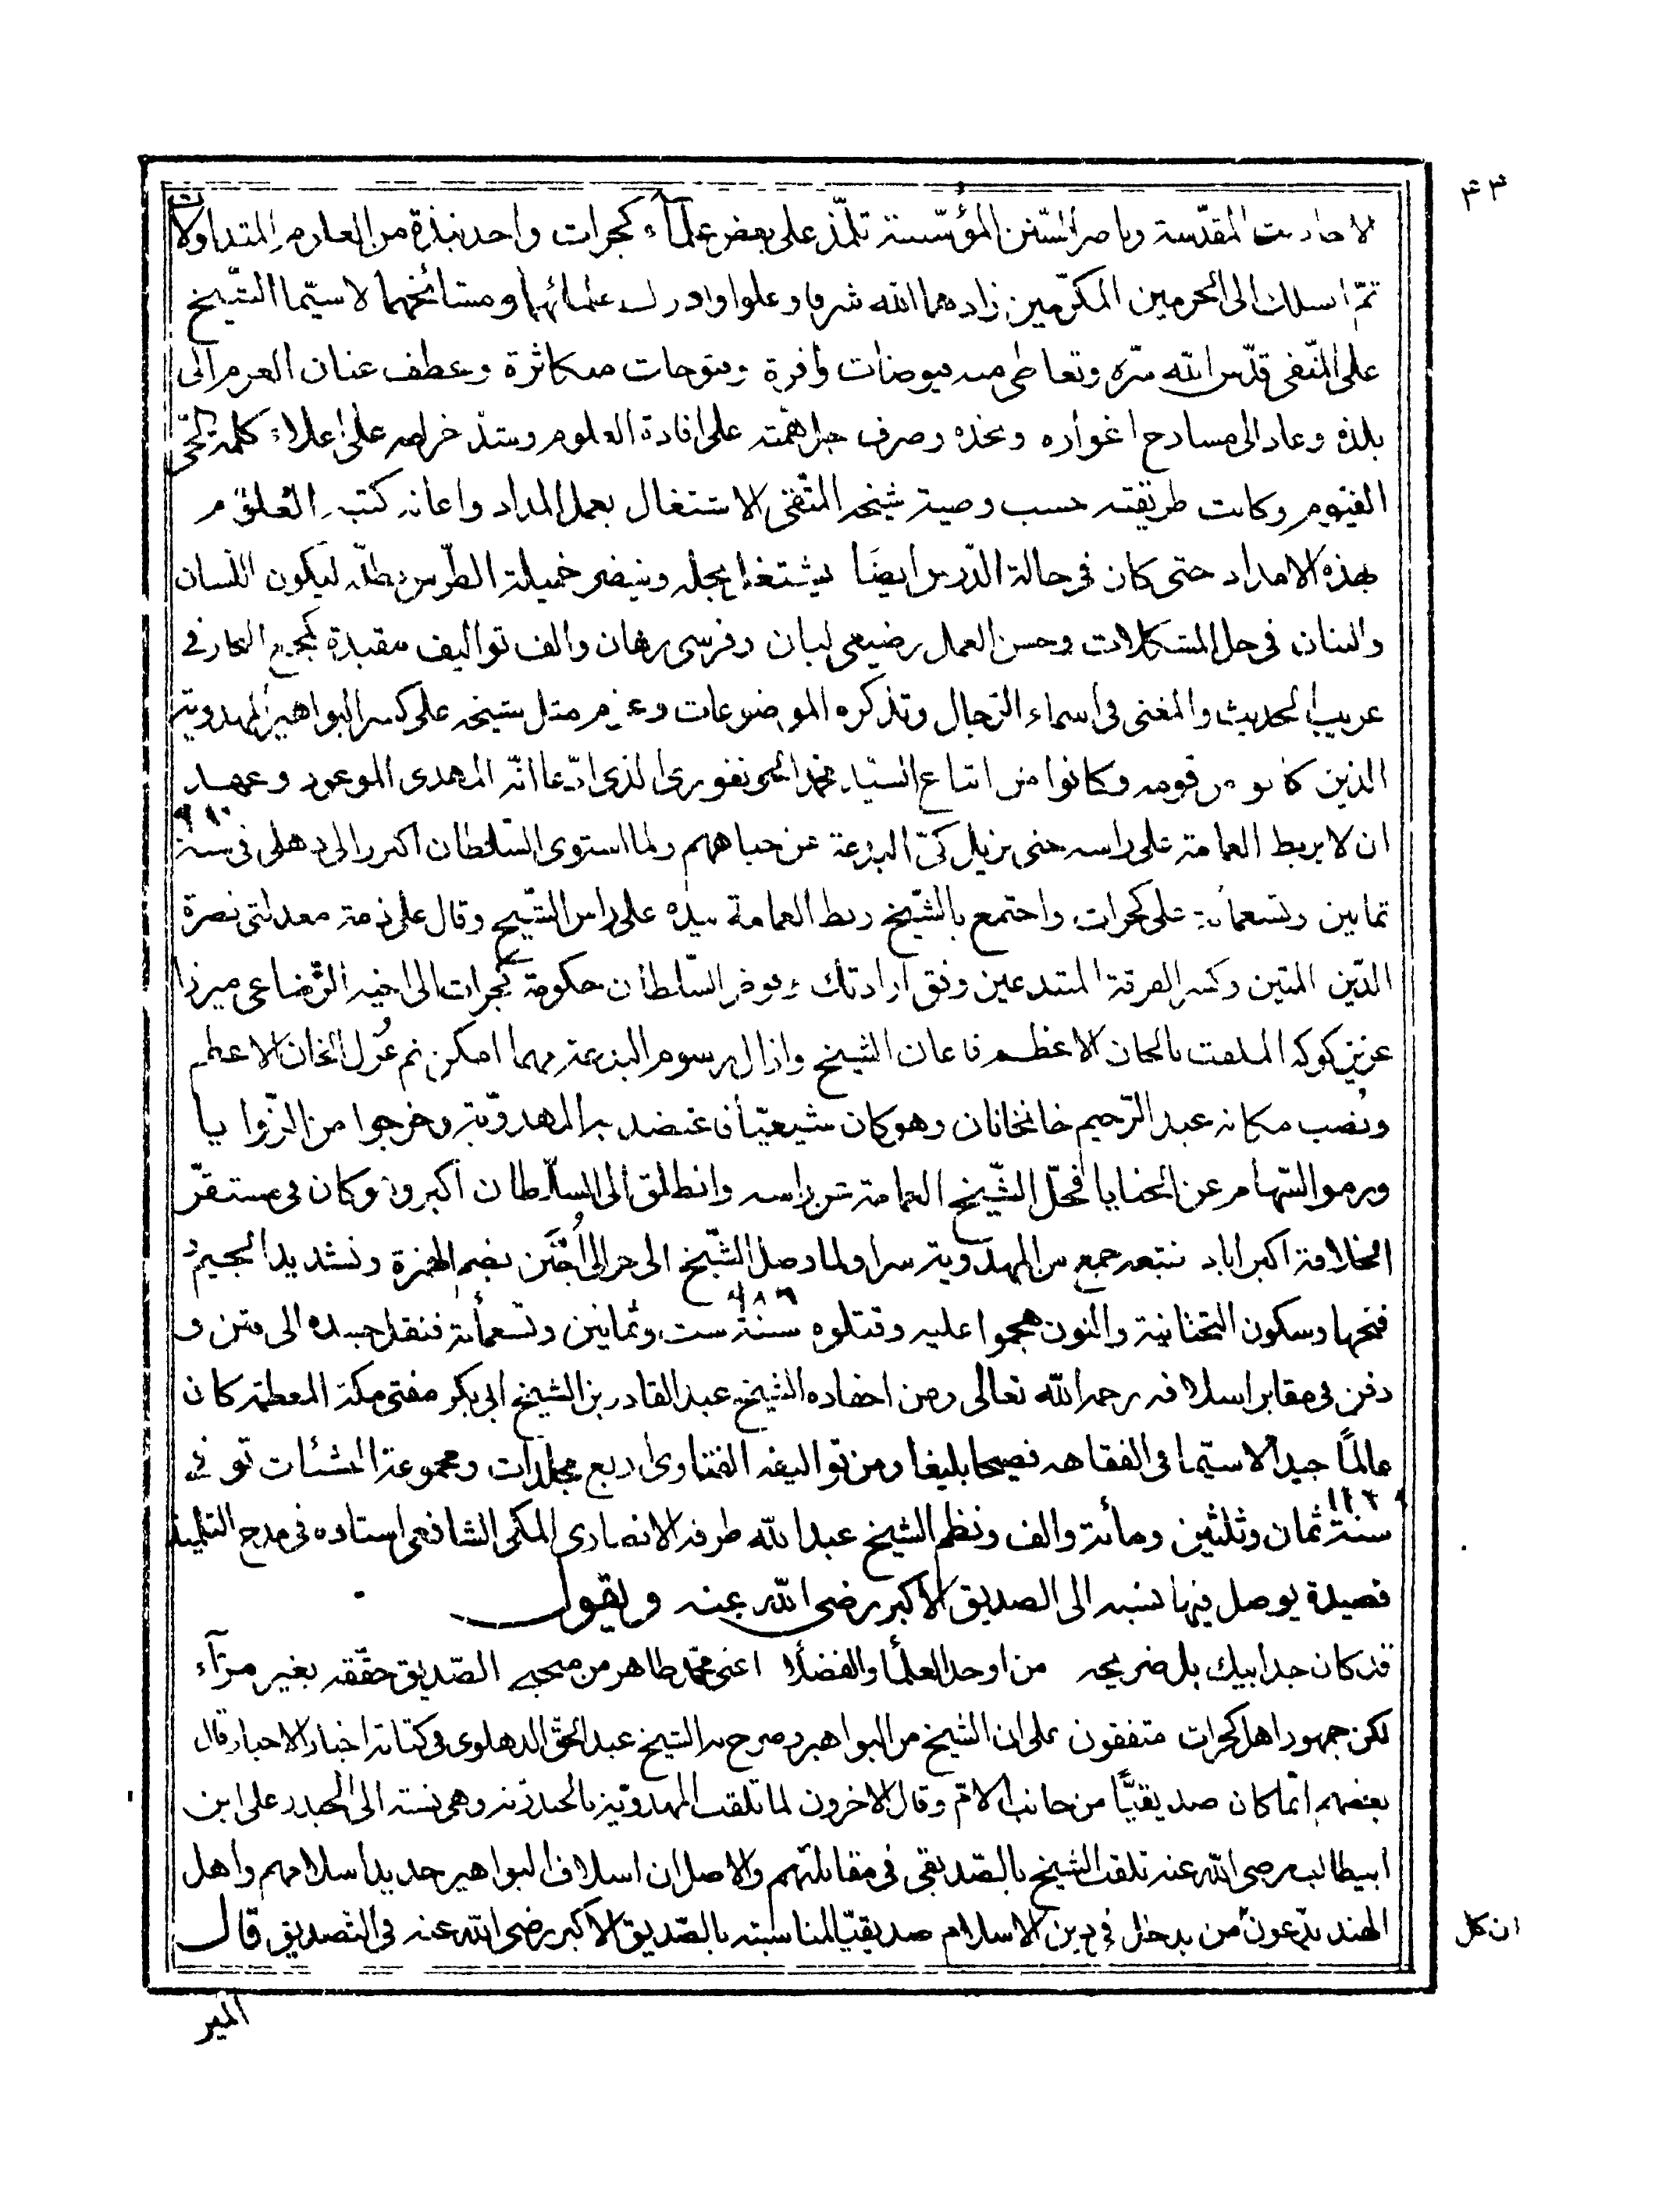 ٤٣
الاحاديث المقدّسة وناصر السّنن المؤسّسة تلمّذ على بعض علمآء كجرات واخذ نبذة من العلوم المتداولات
ثمّ اسلك الى الحرمين المكرّمين زادهما الله شرفا وعلوا وادرك علمائهما ومشائخهما لاسيّما الشّيخ
على المتّقى قدّس الله سرّه وتعاطى منه فيوضات وافرة وفتوحات متكاثرة وعطف عنان العزم الى
بلده وعاد الى مسارح اغواره ونجده وصرف جل همّته على افادة العلوم وشدّ حزامه على اعلاء كلمة الحىّ
القيّوم وكانت طريقته حسب وصية شيخه المتّقى الاشتغال بعمل المداد واعانة كتبة العلوم
بهذه الامداد حتى كان فى حالة الدّرس ايضًا يشتغل بحله وينضر خميلة الطّرس بطلّه ليكون اللّسان
والبنان فى حل المشكلات وحسن العمل رضيعى لبان وفرسى رهان والف تواليف مفيدة كمجمع البحار فى
غريب الحديث والمغنى فى اسماء الرّجال وتذكره الموضوعات وعزم مثل شيخه على كسر البواهير المهدوية
الذين كانوا من قومه وكانوا من اتباع السّيد محمد الجونفورى الذى ادّعا انّه المهدى الموعود وعهد
٩٨٠
ان لا يربط العمامة على راسه حتى يزيل كىّ البدعة عن جباههم ولما استوى السّلطان اكبر والى دهلى فى سنة
ثمانين وتسعمأئة على كجرات واجتمع بالشّيخ ربط العمامة بيده على راس الشّيخ وقال على ذمة معدلتى نصرة
الدّين المتين وكسر الفرقة المبتدعين وفق ارادتك وفوض السّلطان حكومة كجرات الى اخيه الرّضاعى ميرزا
عزيز كوكه الملقب بالخان الاعظم فاعان الشيخ وازال رسوم البدعة مهما امكن ثم عُزل الخان الاعظم
ونُصب مكانه عبد الرّحيم خانخانان وهو كان شيعيّا فاعتضد به المهدويّة وخرجوا من الزّوايا
ورموا السّهام عن الخفايا فحلّ الشّيخ العمامة عن راسه وانطلق الى السّلطان اكبر وهو كان فى مستقرّ
الخلافة اكبراباد فتبعه جمع من المهدوية سرا ولما وصل الشّيخ الى حوالى اُجَّيَن بضم الهمزة وتشديد الجيم و
٩٨٦
فتحها وسكون التحتانية والنون هجموا عليه وقتلوه سنة ست وثمانين وتسعمأئة فنقل جسده الى فتن و
دفن فى مقابر اسلافه رحمه الله تعالى ومن احفاده الشيخ عبد القادر بن الشيخ ابى بكر مفتى مكة المعظمة كان
عالمًا جيدا لاسيّما فى الفقاهه فصيحا بليغا ومن تواليفه الفتاوى اربع مجلدات ومجموعة المنشئات توفى
١١٣٨
سنة ثمان وثلثين ومأئة والف ونظم الشيخ عبد الله طرفه الانصارى المكى الشافعى استاده فى مدح التلميذ
قصيدة يوصل فيها نسبه الى الصديق الاكبر رضى الله عنه ويقول
قد كان جد ابيك بل ضريحه من اوحد العلمأ والفضلأ اعنى محمد طاهر من منجى الصّديق حققه بغير مرآء
لكن جمهور اهل كجرات متفقون على ان الشيخ من البواهير وصرح به الشيخ عبد الحق الدهلوى فى كتابه اخبار الاخيار قال
بعضهم انما كان صديقيًّا من جانب الامّ وقال الاخرون لما تلقب المهدويّة بالحيدرية وهى نسبة الى الحيدر على ابن
ابيطالب رضى الله عنه تلقب الشيخ بالصّديقى فى مقابلتهم والاصل ان اسلاف البواهير جديد اسلامهم واهل
الهند يدّعون من يدخل فى دين الاسلام صديقيّا لمناسبته بالصّديق الاكبر رضى الله عنه فى التّصديق قال
ان كل
المير